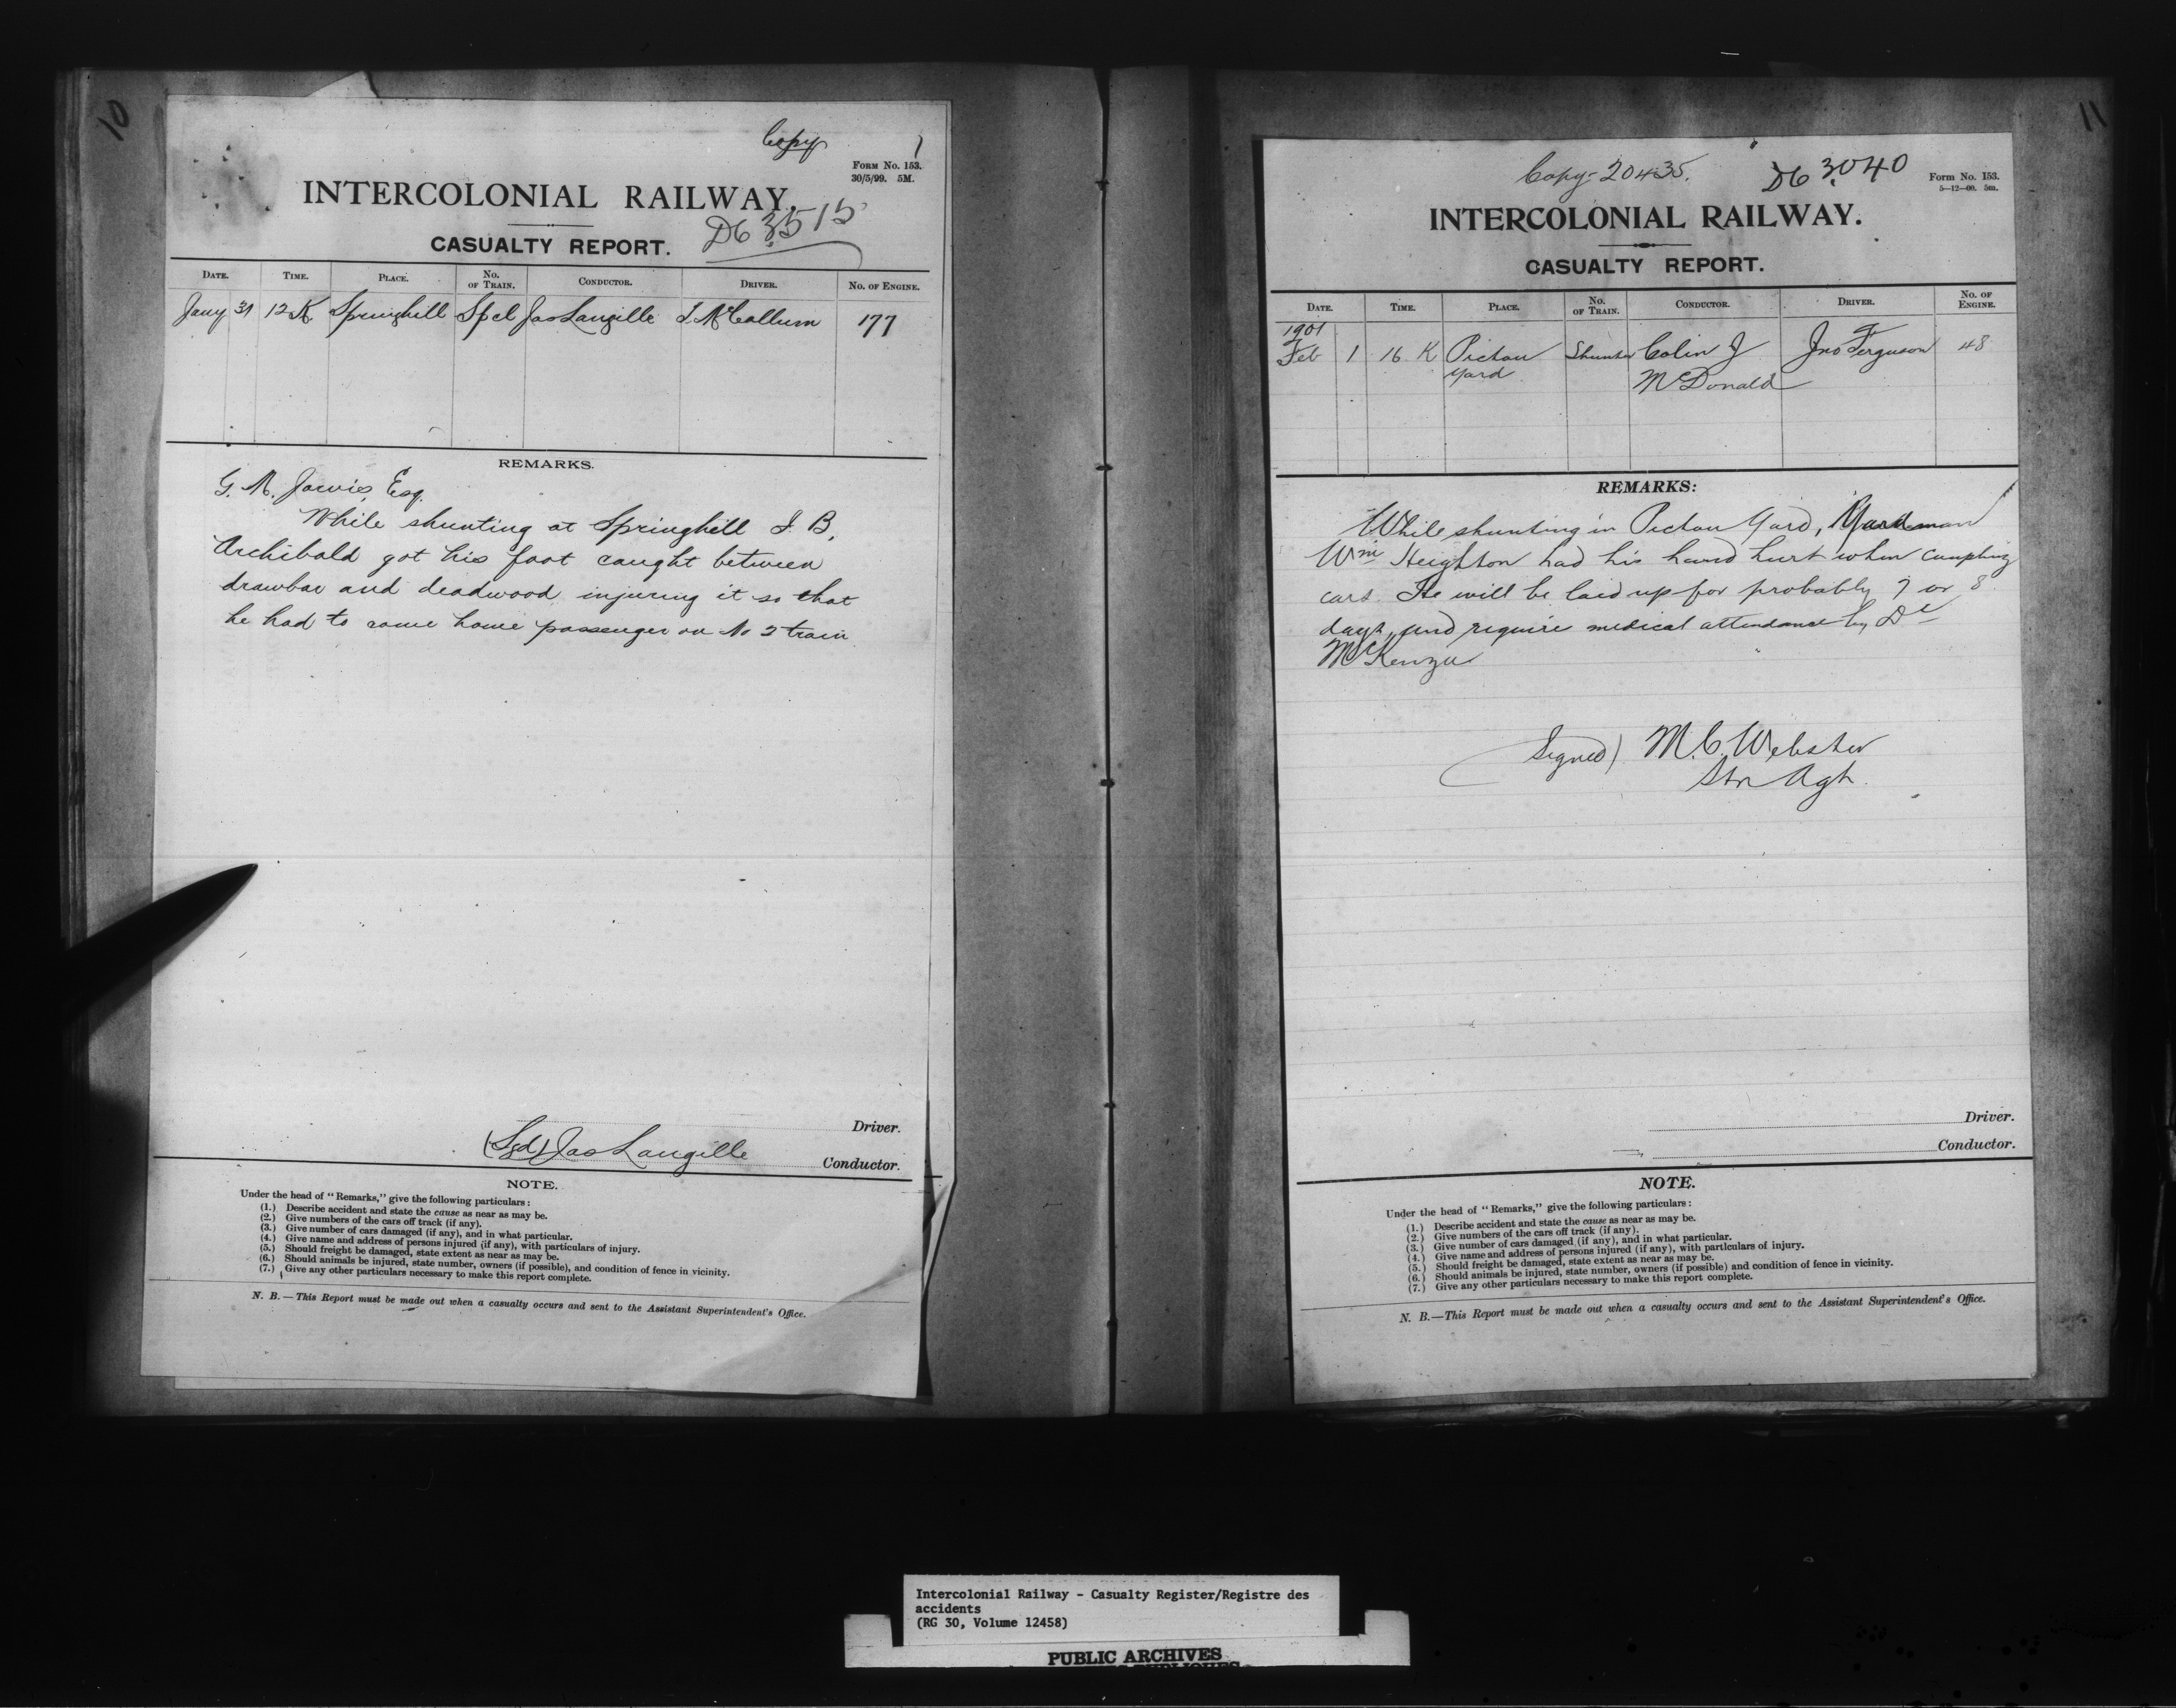 10
Copy
1
FORM NO. 153.
30/5/99. 5M.
INTERCOLONIAL RAILWAY.
D6 3515
CASUALTY REPORT.
DATE. TIME. PLACE. NO. OF TRAIN. CONDUCTOR. DRIVER. NO. OF ENGINE.
Jany 31 12 K Springhill Spcl Jas Langille J. McCallum 177
REMARKS.
G. M. Jarvis, Esq.
While shunting at Springhill J. B.
Archibald got his foot caught between
drawbar and deadwood injuring it so that
he had to come home passenger on No 2 train
Driver.
(Sgd) Jas Langille Conductor.
NOTE.
Under the head of "Remarks," give the following particulars:
(1.) Describe accident and state the cause as near as may be.
(2.) Give numbers of the cars off track (if any).
(3.) Give number of cars damaged (if any), and in what particular.
(4.) Give name and address of persons injured (if any), with particulars of injury.
(5.) Should freight be damaged, state extent as near as may be.
(6.) Should animals be injured, state number, owners (if possible), and condition of fence in vicinity.
(7.) Give any other particulars necessary to make this report complete.
N. B.—This Report must be made out when a casualty occurs and sent to the Assistant Superintendent's Office.
11
Copy-20435.
D6 3040
FORM NO. 153.
5—12—00. 5m.
INTERCOLONIAL RAILWAY.
CASUALTY REPORT.
DATE. TIME. PLACE. NO. OF TRAIN. CONDUCTOR. DRIVER. NO. OF ENGINE.
1901
Feb 1 16 K Pictou Shunter Colin J Jno F Ferguson 48
Yard McDonald
REMARKS:
While shunting in Pictou Yard, Yardman
Wm Heighton had his hand hurt when coupling
cars. He will be laid up for probably 7 or 8
days, and require medical attendance by Dr
McKenzie
(Signed) M. C. Webster
Stn Agt.
Driver.
Conductor.
NOTE.
Under the head of "Remarks," give the following particulars:
(1.) Describe accident and state the cause as near as may be.
(2.) Give numbers of the cars off track (if any).
(3.) Give number of cars damaged (if any), and in what particular.
(4.) Give name and address of persons injured (if any), with particulars of injury.
(5.) Should freight be damaged, state extent as near as may be.
(6.) Should animals be injured, state number, owners (if possible) and condition of fence in vicinity.
(7.) Give any other particulars necessary to make this report complete.
N. B.—This Report must be made out when a casualty occurs and sent to the Assistant Superintendent's Office.
Intercolonial Railway - Casualty Register/Registre des
accidents
(RG 30, Volume 12458)
PUBLIC ARCHIVES